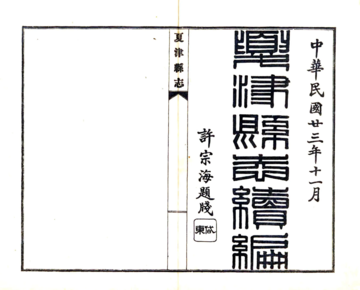 中華民國廿三年十一月
夏津縣志續編
許宗海題牋
夏津縣志